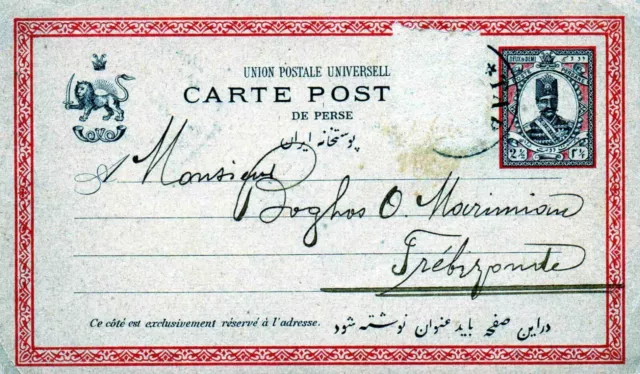 UNION POSTALE UNIVERSELL
CARTE POST
DE PERSE
پوستخانه ایران
DEUX & DEMI
POSTE PERSANE
2½ ۲½
A Monsieur
Boghos O. Marimian
Trébizonde
Ce côté est exclusivement réservé à l'adresse.
دراین صفحه باید عنوان نوشته شود